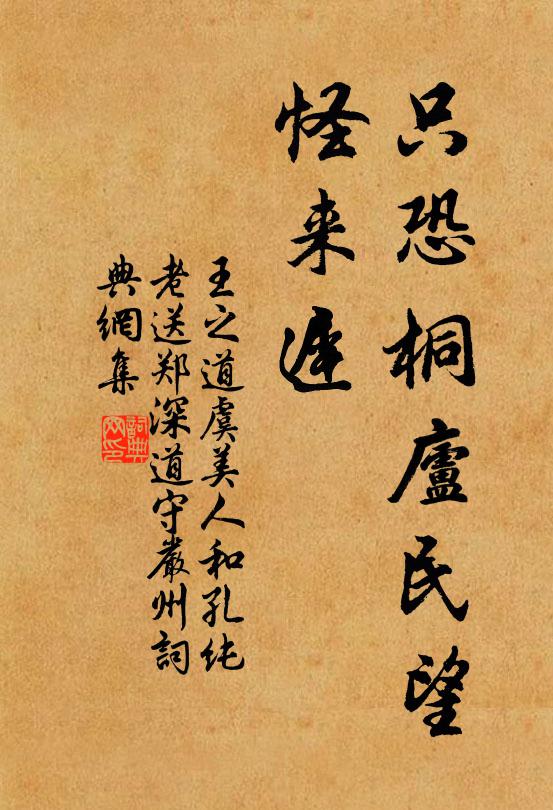 只恐桐廬民望
怪来遲
王之道虞美人和孔纯
老送郑深道守嚴州詞
典網集
詞典网印